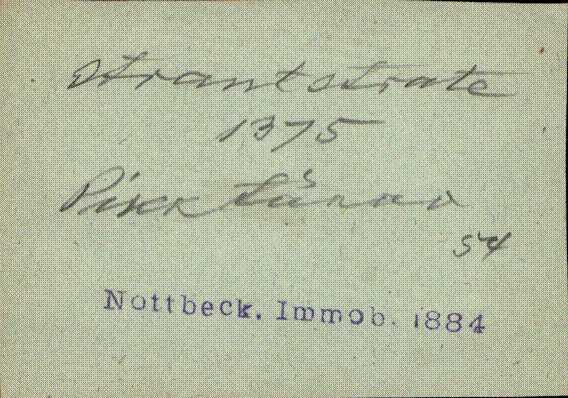 strantstrate
1375
Pikk tänav
54
Nottbeck. Immob. 1884